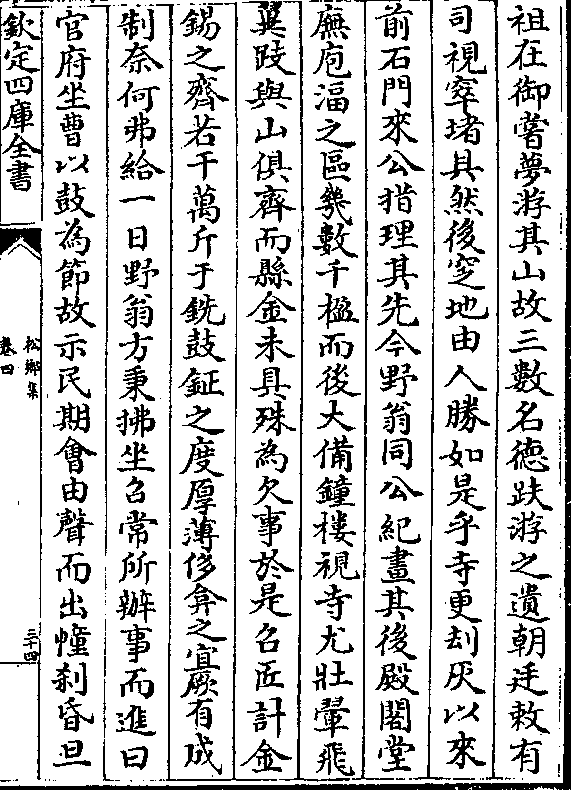 祖在御嘗夢游其山故三數名德趺游之遺朝廷敕有
司視窣堵其然後窆地由人勝如是乎寺更刦灰以來
前石門來公措理其先今野翁同公紀畫其後殿閣堂
廡庖湢之區幾數千楹而後大備鐘樓視寺尤壯翬飛
翼跂與山俱齊而縣金未具殊為欠事於是召匠計金
錫之齊若干萬斤于銑鼓鉦之度厚薄侈弇之宜厥有成
制奈何弗給一日野翁方秉拂坐召常所辦事而進曰
官府坐曹以鼓為節故示民期會由聲而出幢刹昏旦
欽定四庫全書
松鄉集
卷四
三十四